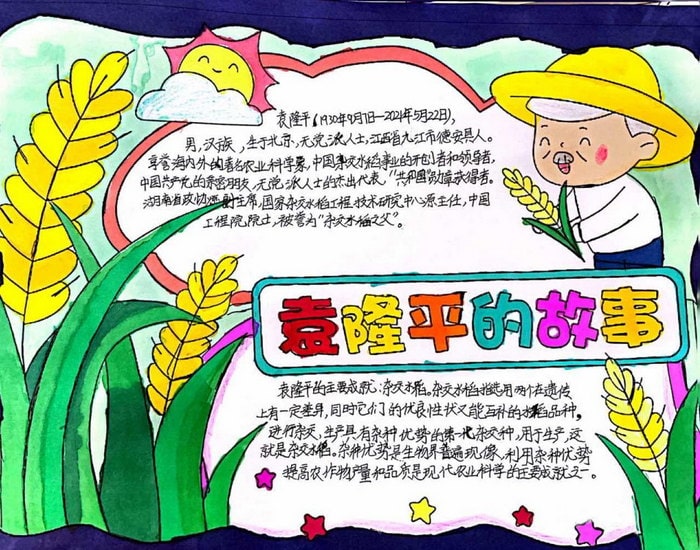 袁隆平(1930年9月7日—2021年5月22日),
男,汉族,生于北京,无党派人士,江西省九江市德安县人。
享誉海内外的著名农业科学家,中国杂交水稻事业的开创者和领导者,
中国共产党的亲密朋友,无党派人士的杰出代表,“共和国”勋章获得者。
湖南省政协原副主席,国家杂交水稻工程技术研究中心原主任,中国
工程院院士,被誉为“杂交水稻之父”。
袁隆平的故事
袁隆平的主要成就:杂交水稻。杂交水稻指选用两个在遗传
上有一定差异,同时它们的优良性状又能互补的水稻品种,
进行杂交,生产具有杂种优势的第一代杂交种,用于生产,这
就是杂交水稻。杂种优势是生物界普遍现象,利用杂种优势
提高农作物产量和品质是现代农业科学的主要成就之一。